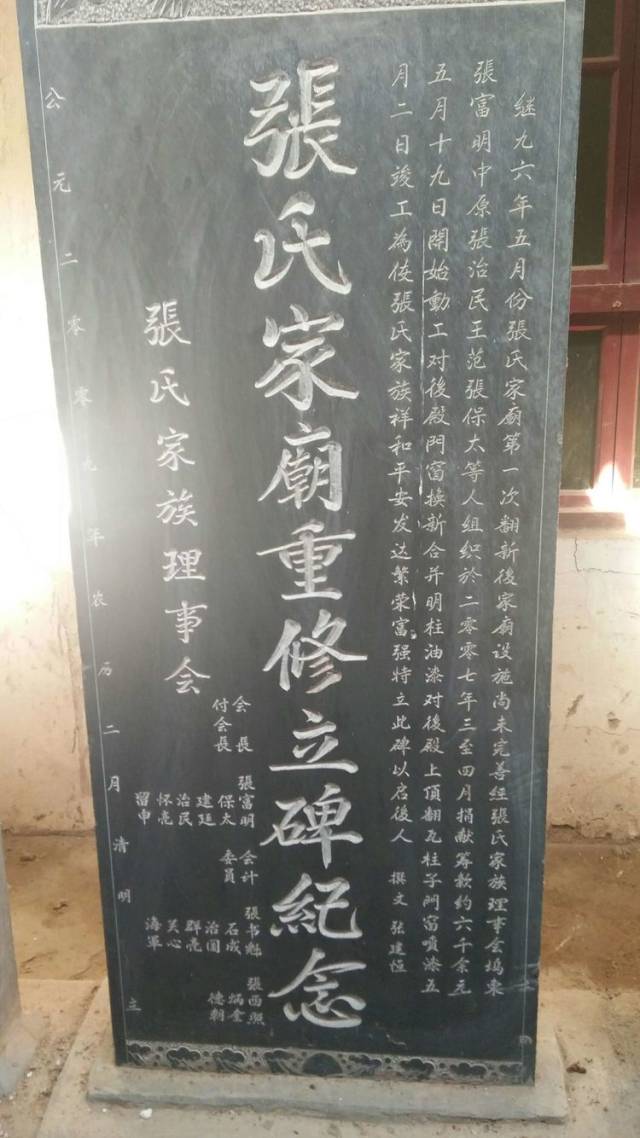 继九六年五月份張氏家廟第一次翻新後家廟設施尚未完善經張氏家族理事会塢東
張富明中原張治民王范張保太等人組织於二零零七年三至四月捐献筹款约六千余元
五月十九日開始動工对後殿門窗换新合并明柱油漆对後殿上頂翻瓦柱子門窗噴漆五
月二日竣工為使張氏家族祥和平安发达繁荣富强特立此碑以启後人 撰文 张建恒
張氏家廟重修立碑紀念
張氏家族理事会
会長 張富明 会计 張书縣 張西照
付会長 保太 委員 石成 炳金
建廷 治国 德朝
治民 群亮
怀亮 关心
留申 海軍
公元二零零九年农历二月清明 立